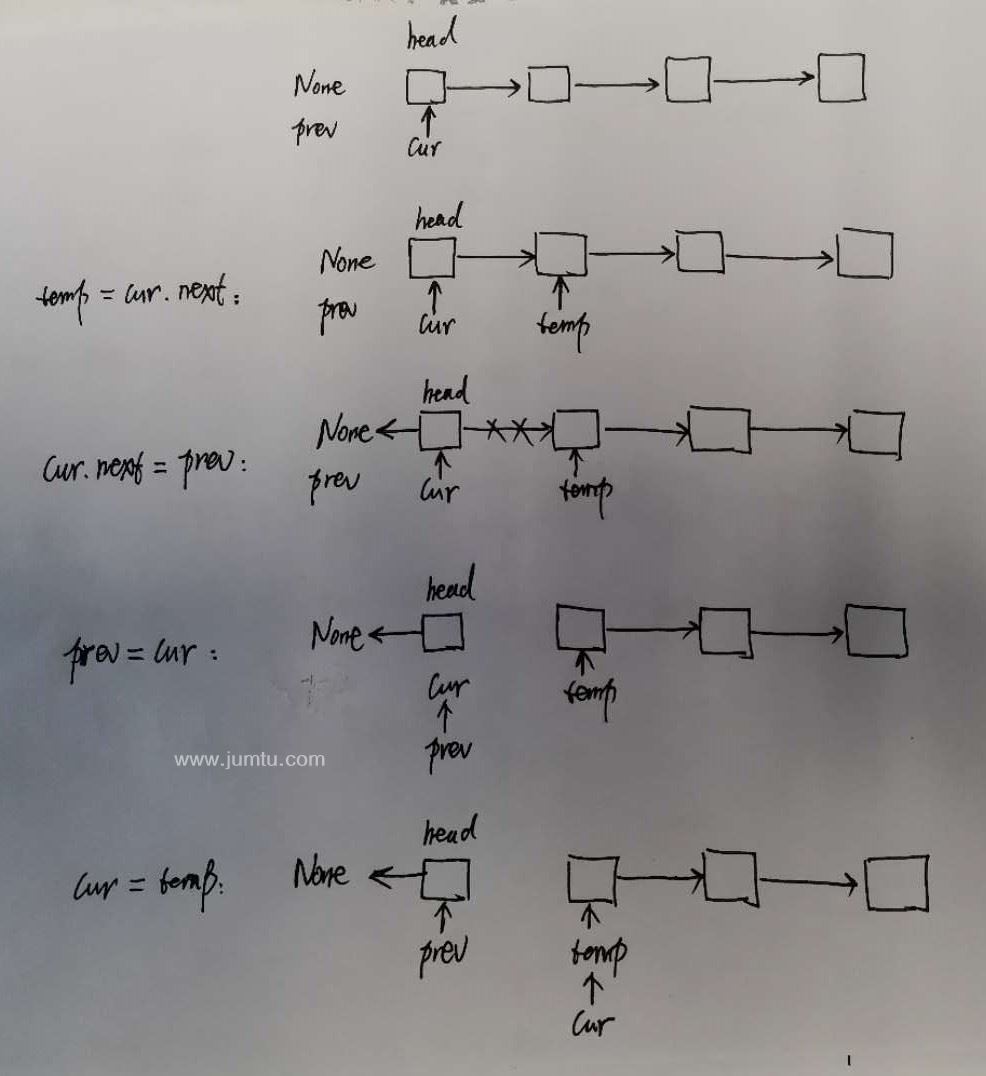 head
None
prev
cur
head
temp = cur.next:
None
prev
cur temp
head
cur.next = prev:
None
prev
cur temp
head
prev = cur:
None
cur temp
prev
www.jumtu.com
head
cur = temp:
None
prev temp
cur